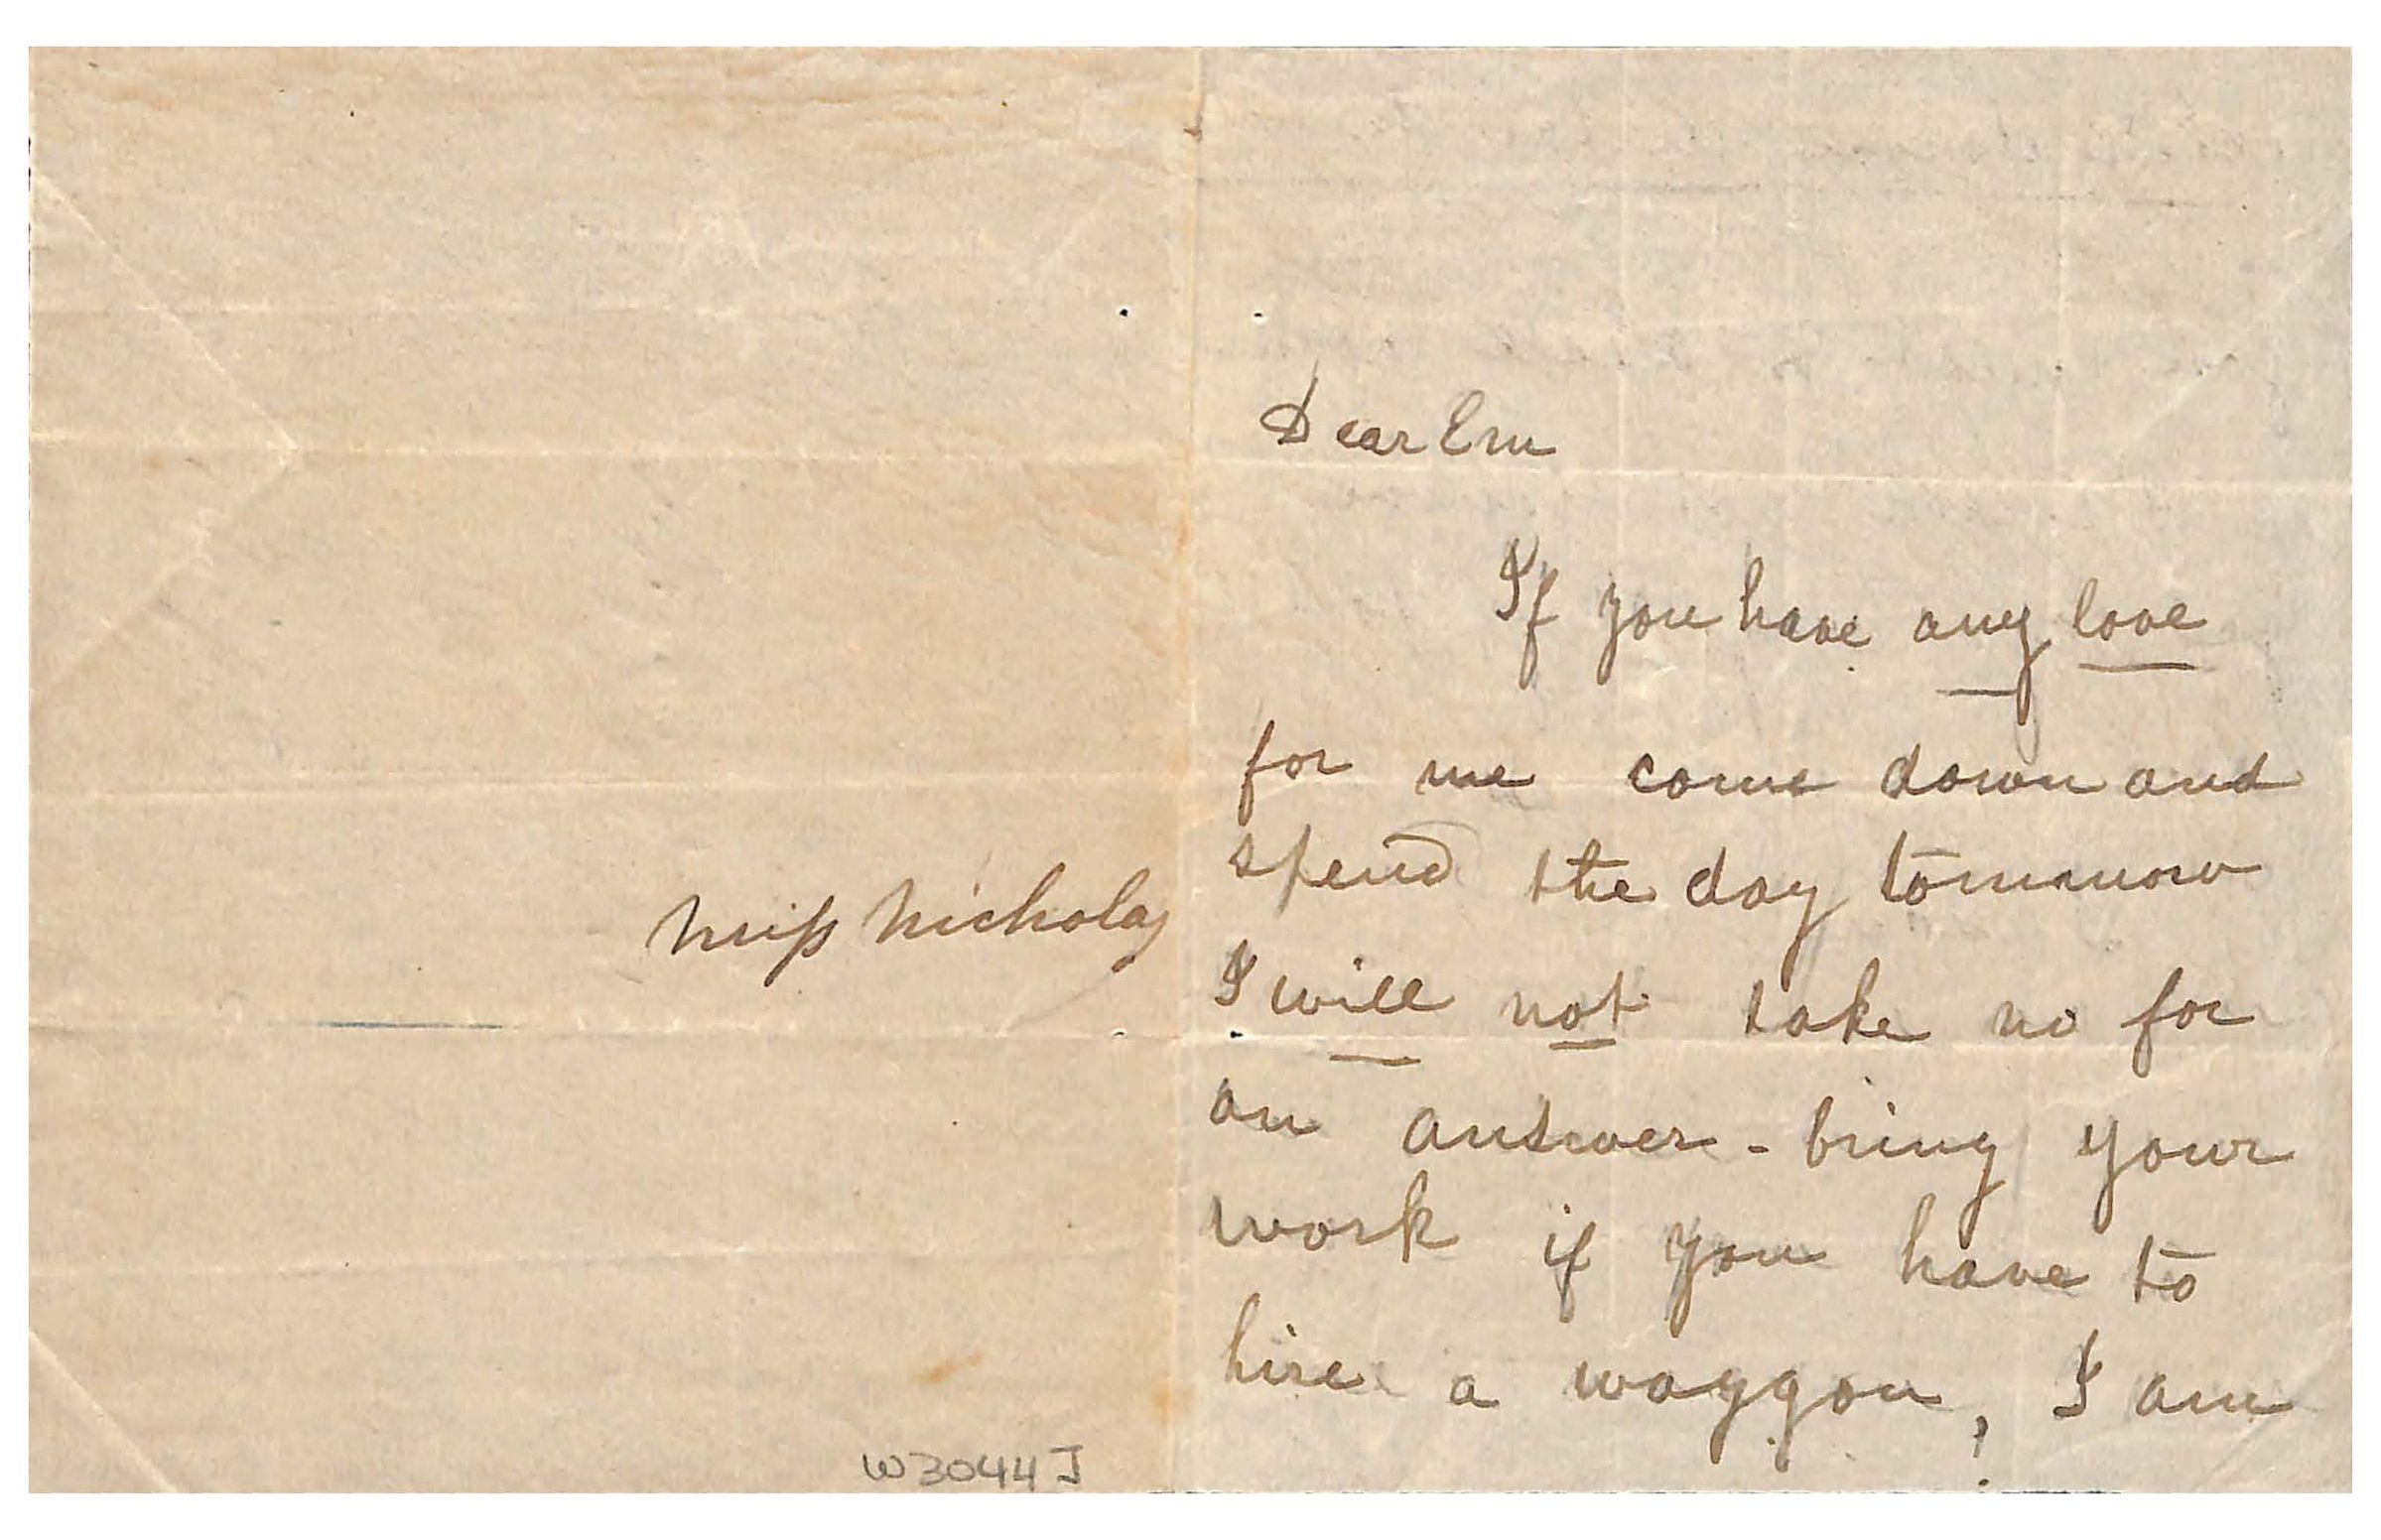 Miss Nicholas
W3044J
Dear Em
If you have any love
for me come down and
spend the day tomorrow
I will not take no for
an answer - bring your
work if you have to
hire a waggon, I am